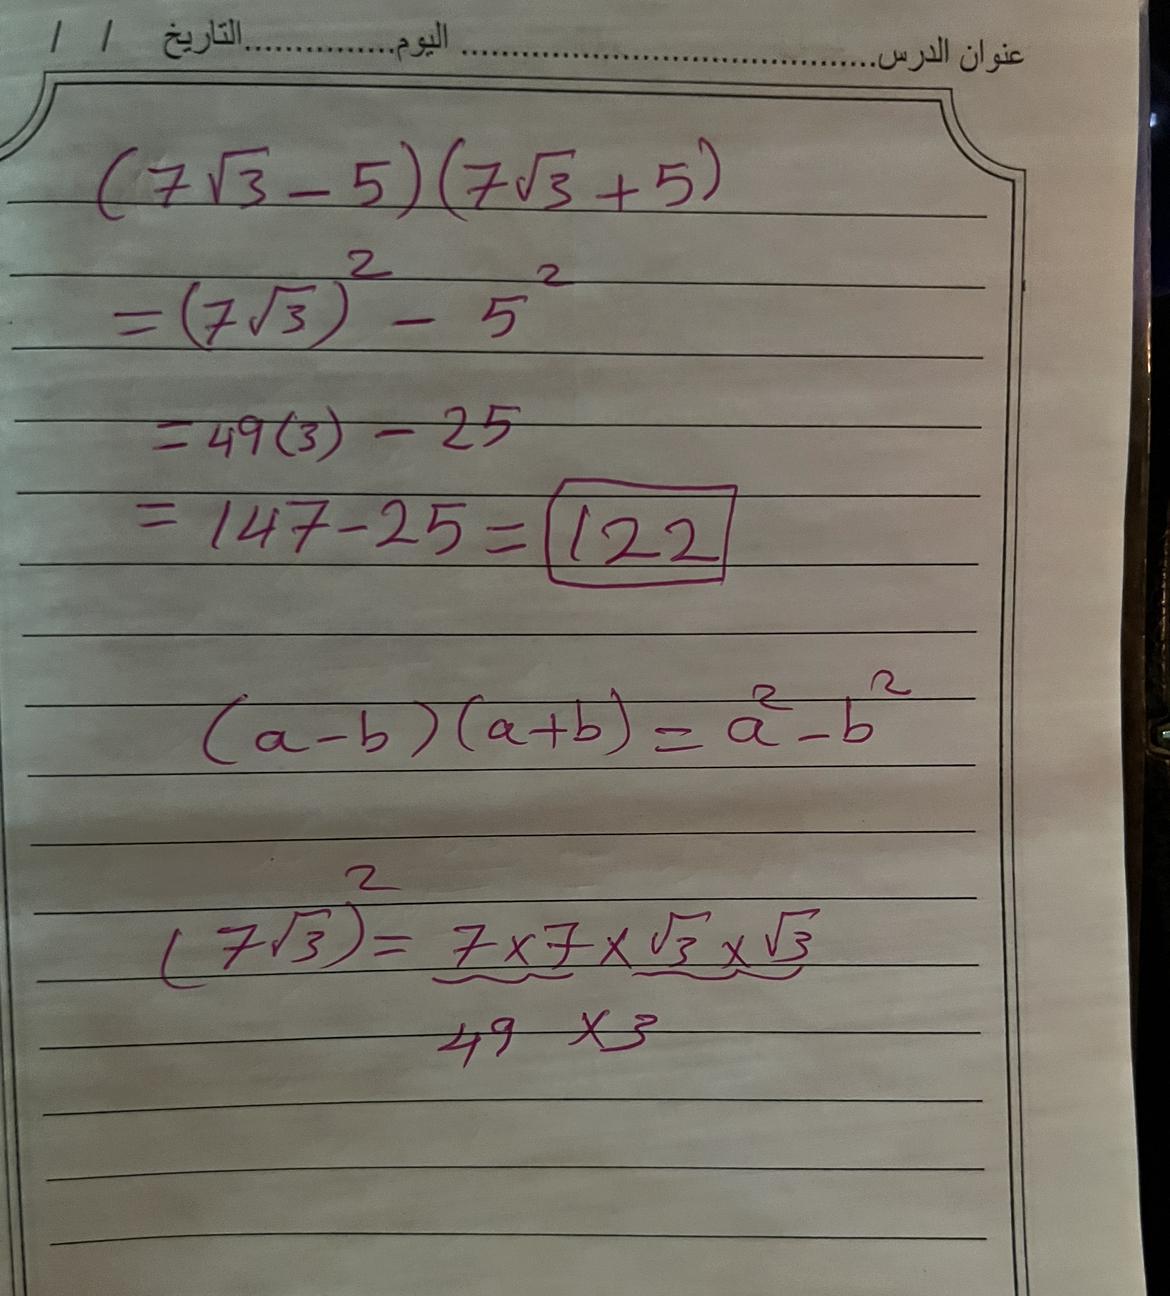 عنوان الدرس.......................................... اليوم...............التاريخ / /
(7√3 – 5)(7√3 + 5)
= (7√3)² – 5²
= 49(3) – 25
= 147 – 25 = 122
(a – b)(a + b) = a² – b²
(7√3)² = 7 × 7 × √3 × √3
49 × 3